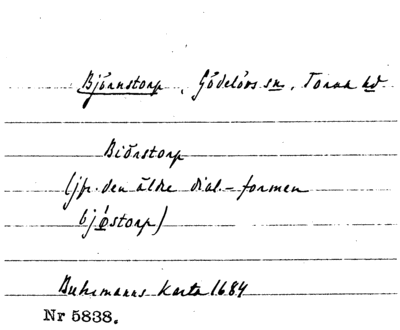 Björnstorp, Gödelövs sn, Torna hd.
Biörstorp
(jfr. den äldre dial.-formen
bjǿstorp)
Buhrmanns karta 1684
Nr 5838.